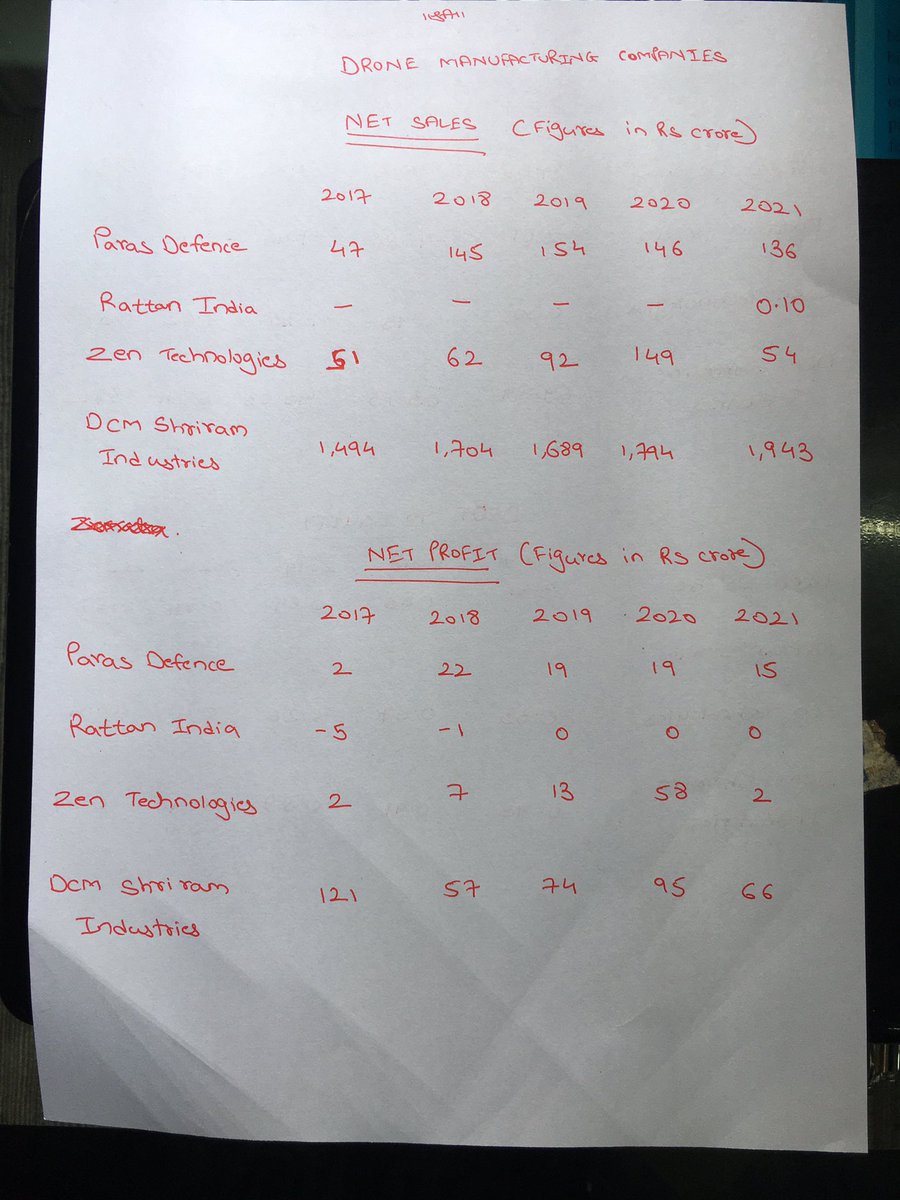 DRONE MANUFACTURING COMPANIES
NET SALES (Figures in Rs crore)
2017 2018 2019 2020 2021
Paras Defence 47 145 154 146 136
Rattan India — — — — 0.10
Zen Technologies 51 62 92 149 54
DCM Shriram
Industries 1,494 1,704 1,689 1,794 1,943
NET PROFIT (Figures in Rs crore)
2017 2018 2019 2020 2021
Paras Defence 2 22 19 19 15
Rattan India -5 -1 0 0 0
Zen Technologies 2 7 13 58 2
DCM Shriram 121 57 74 95 66
Industries